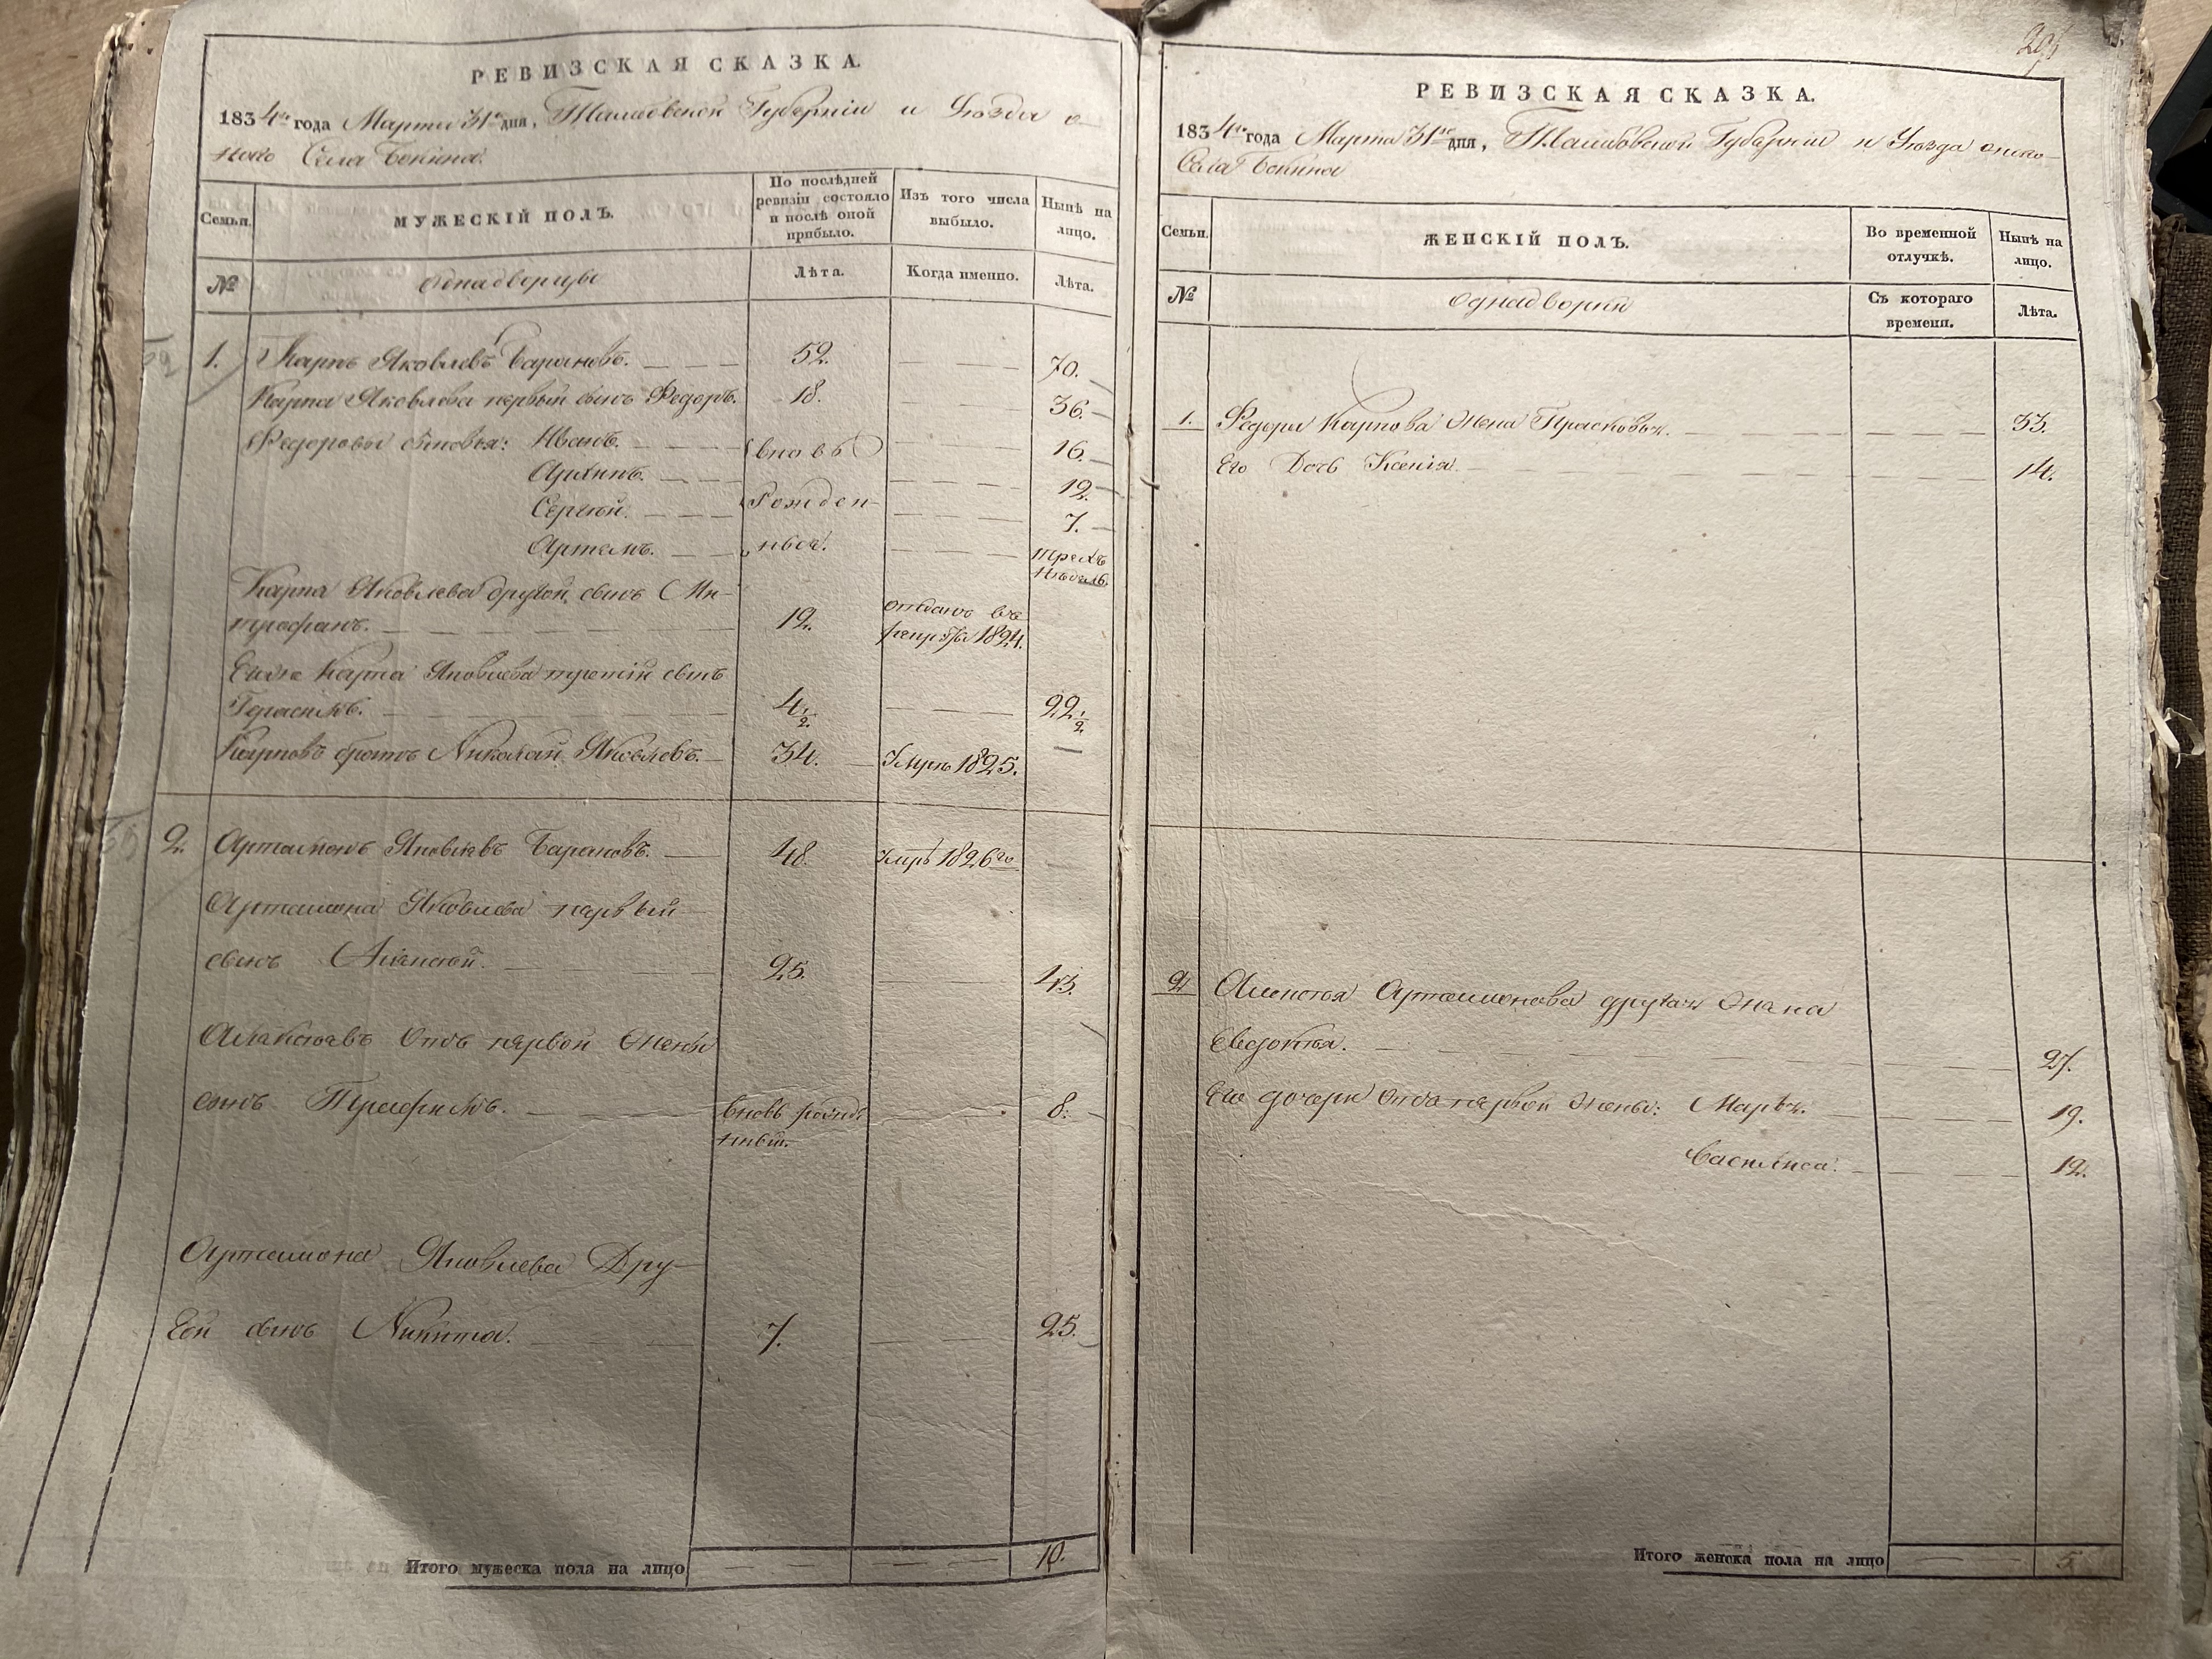 РЕВИЗСКАЯ СКАЗКА.
1834го года Марта 31го дня, Тамбовской Губернии и Уезда о-
ного Села Бокина.
Семьи.
МУЖЕСКІЙ ПОЛЪ.
По послѣдней ревизіи состояло и послѣ оной прибыло.
Изъ того числа выбыло.
Нынѣ на лицо.
№
Однадворцы
Лѣта.
Когда именно.
Лѣта.
1. Карпъ Яковлевъ Барановъ. 52. 70.
Карпа Яковлева первый сынъ Федоръ. 18. 36.
Федоровы сыновья: Иванъ. вновь 16.
Архипъ. 12.
Сергѣй. Рожден- 7.
Артемъ. ныя. трехъ недель.
Карпа Яковлева другой сынъ Ми-
трофанъ. 12. отданъ въ рекруты 1824.
Его же Карпа Яковлева третій сынъ
Герасимъ. 4 1/2 22 1/2
Карповъ братъ Николай Яковлевъ. 34. Умре 1825.
2. Артамонъ Яковлевъ Барановъ. 48. умре 1826го
Артамона Яковлева первый
сынъ Алексей. 25. 43.
Алексеевъ Отъ первой Жены
сынъ Трефилъ. вновь рожденный. 8.
Артамона Яковлева Дру-
гой сынъ Никита. 7. 25.
Итого мужеска пола на лицо 10.
РЕВИЗСКАЯ СКАЗКА.
1834го года Марта 31го дня, Тамбовской Губернии и Уезда оного
Села Бокина
Семьи.
ЖЕНСКІЙ ПОЛЪ.
Во временной отлучкѣ.
Нынѣ на лицо.
№
Однадворки
Съ котораго времени.
Лѣта.
1. Федора Карпова Жена Прасковья. 33.
Его Дочь Ксенія. 14.
2. Алексея Артамонова другая Жена
Евдокия. 27.
Его дочери Отъ первой Жены: Марья. 19.
Василиса. 12.
Итого женска пола на лицо 5